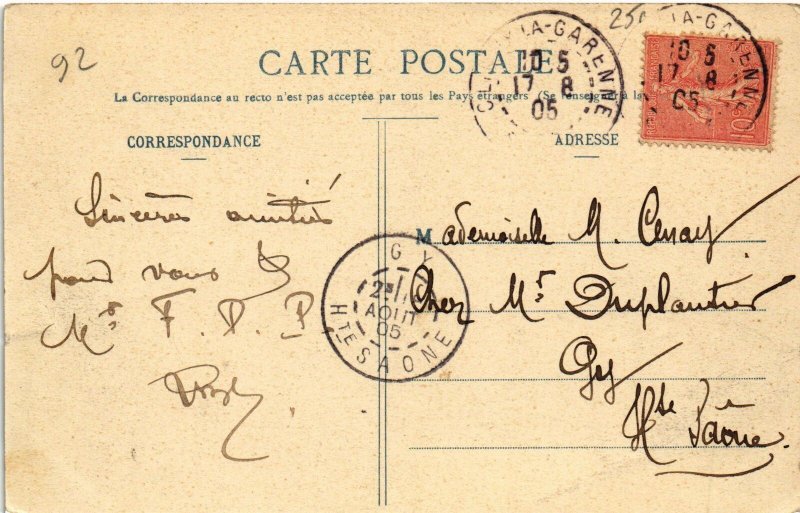 92
250
CARTE POSTALE
La Correspondance au recto n'est pas acceptée par tous les Pays étrangers (Se renseigner à la
CORRESPONDANCE
ADRESSE
LA-GARENNE
10 5
17 8
05
LA-GARENNE
10 5
17 8
05
Sincères amitiés
pour vous &
Mrs F. D. P.
GY
2
AOUT
05
HTE SAONE
Mademoiselle M. Cenay
Chez Mr Duplantier
Gy
Hte Saône